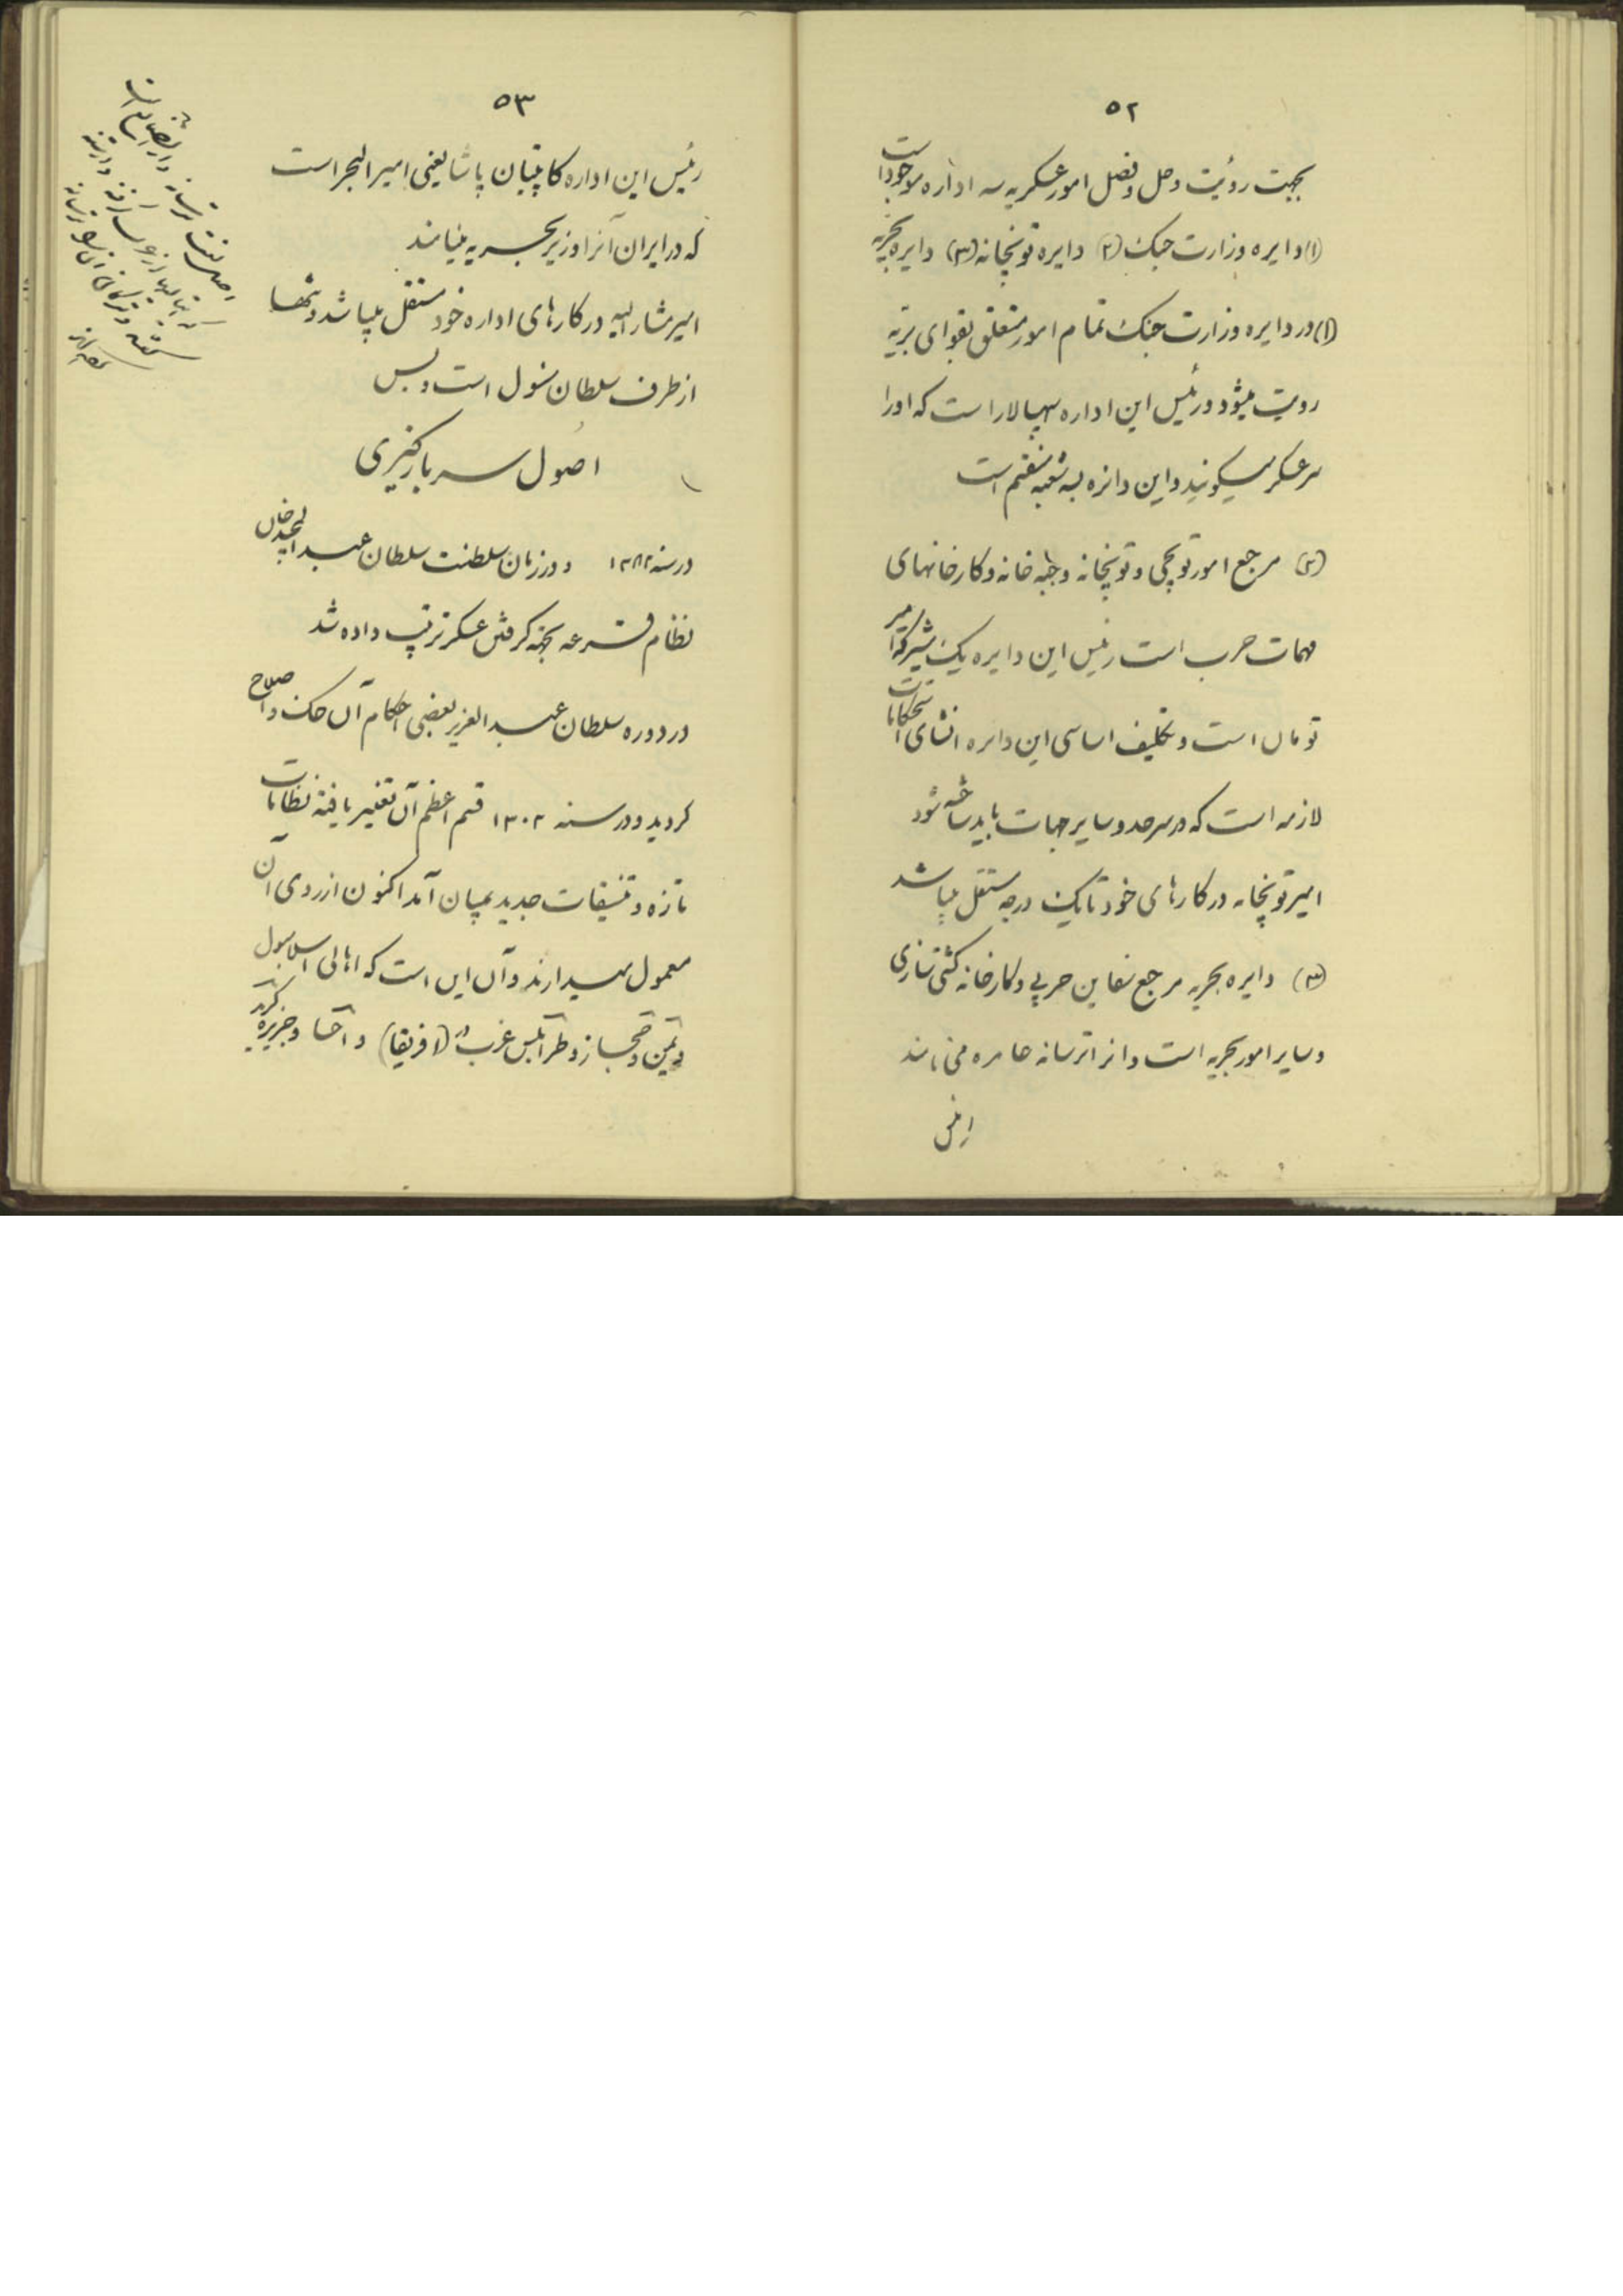 ۵۲
بجهت رؤیت وحل وفصل امور عسکریه سه اداره موجود است
(۱) دایره وزارت جنک (۲) دایره توپخانه (۳) دایره بحریه
(۱) در دایره وزارت جنک تمام امور متعلق بقوای بریه
رویت میشود ورئیس این اداره سپهسالار است که اورا
سرعسکر میکویند واین دائره بسه شعبه منقسم است
(۲) مرجع امور توپچی وتوپخانه وجبه خانه وکارخانهای
مهمات حرب است رئیس این دایره یک مشیر که امیر
تومان است وتکلیف اساسی این دایره انشای استحکامات
لازمه است که در سرحد وسایر جهات باید ساخته شود
امیر توپخانه در کارهای خود تا یک درجه مستقل میباشد
(۳) دایره بحریه مرجع سفاین حربی وکارخانه کشتی سازی
وسایر امور بحریه است وانرا ترسانه عامره می نامند
رئیس
۵۳
رئیس این اداره کاپیتان پاشا یعنی امیر البحر است
که در ایران آنرا وزیر بحریه مینامند
امیر مشار الیه در کارهای اداره خود مستقل میباشد وتنها
از طرف سلطان مسئول است وبس
اصول سربازکیری
در سنه ۱۲۸۲ ودر زمان سلطنت سلطان عبد المجید خان
نظام قرعه بجهة کرفتن عسکر ترتیب داده شد
در دوره سلطان عبد العزیز بعضی احکام آن حک واصلاح
کردید ودر سنه ۱۳۰۳ قسم اعظم آن تغییر یافته نظامات
تازه وتنسیقات جدید بمیان آمد اکنون از روی آن
معمول میدارند وآن این است که اهالی اسلامبول
ویمن وحجاز وطرابلس غرب (در افریقا) واحسا وجزیره کرید